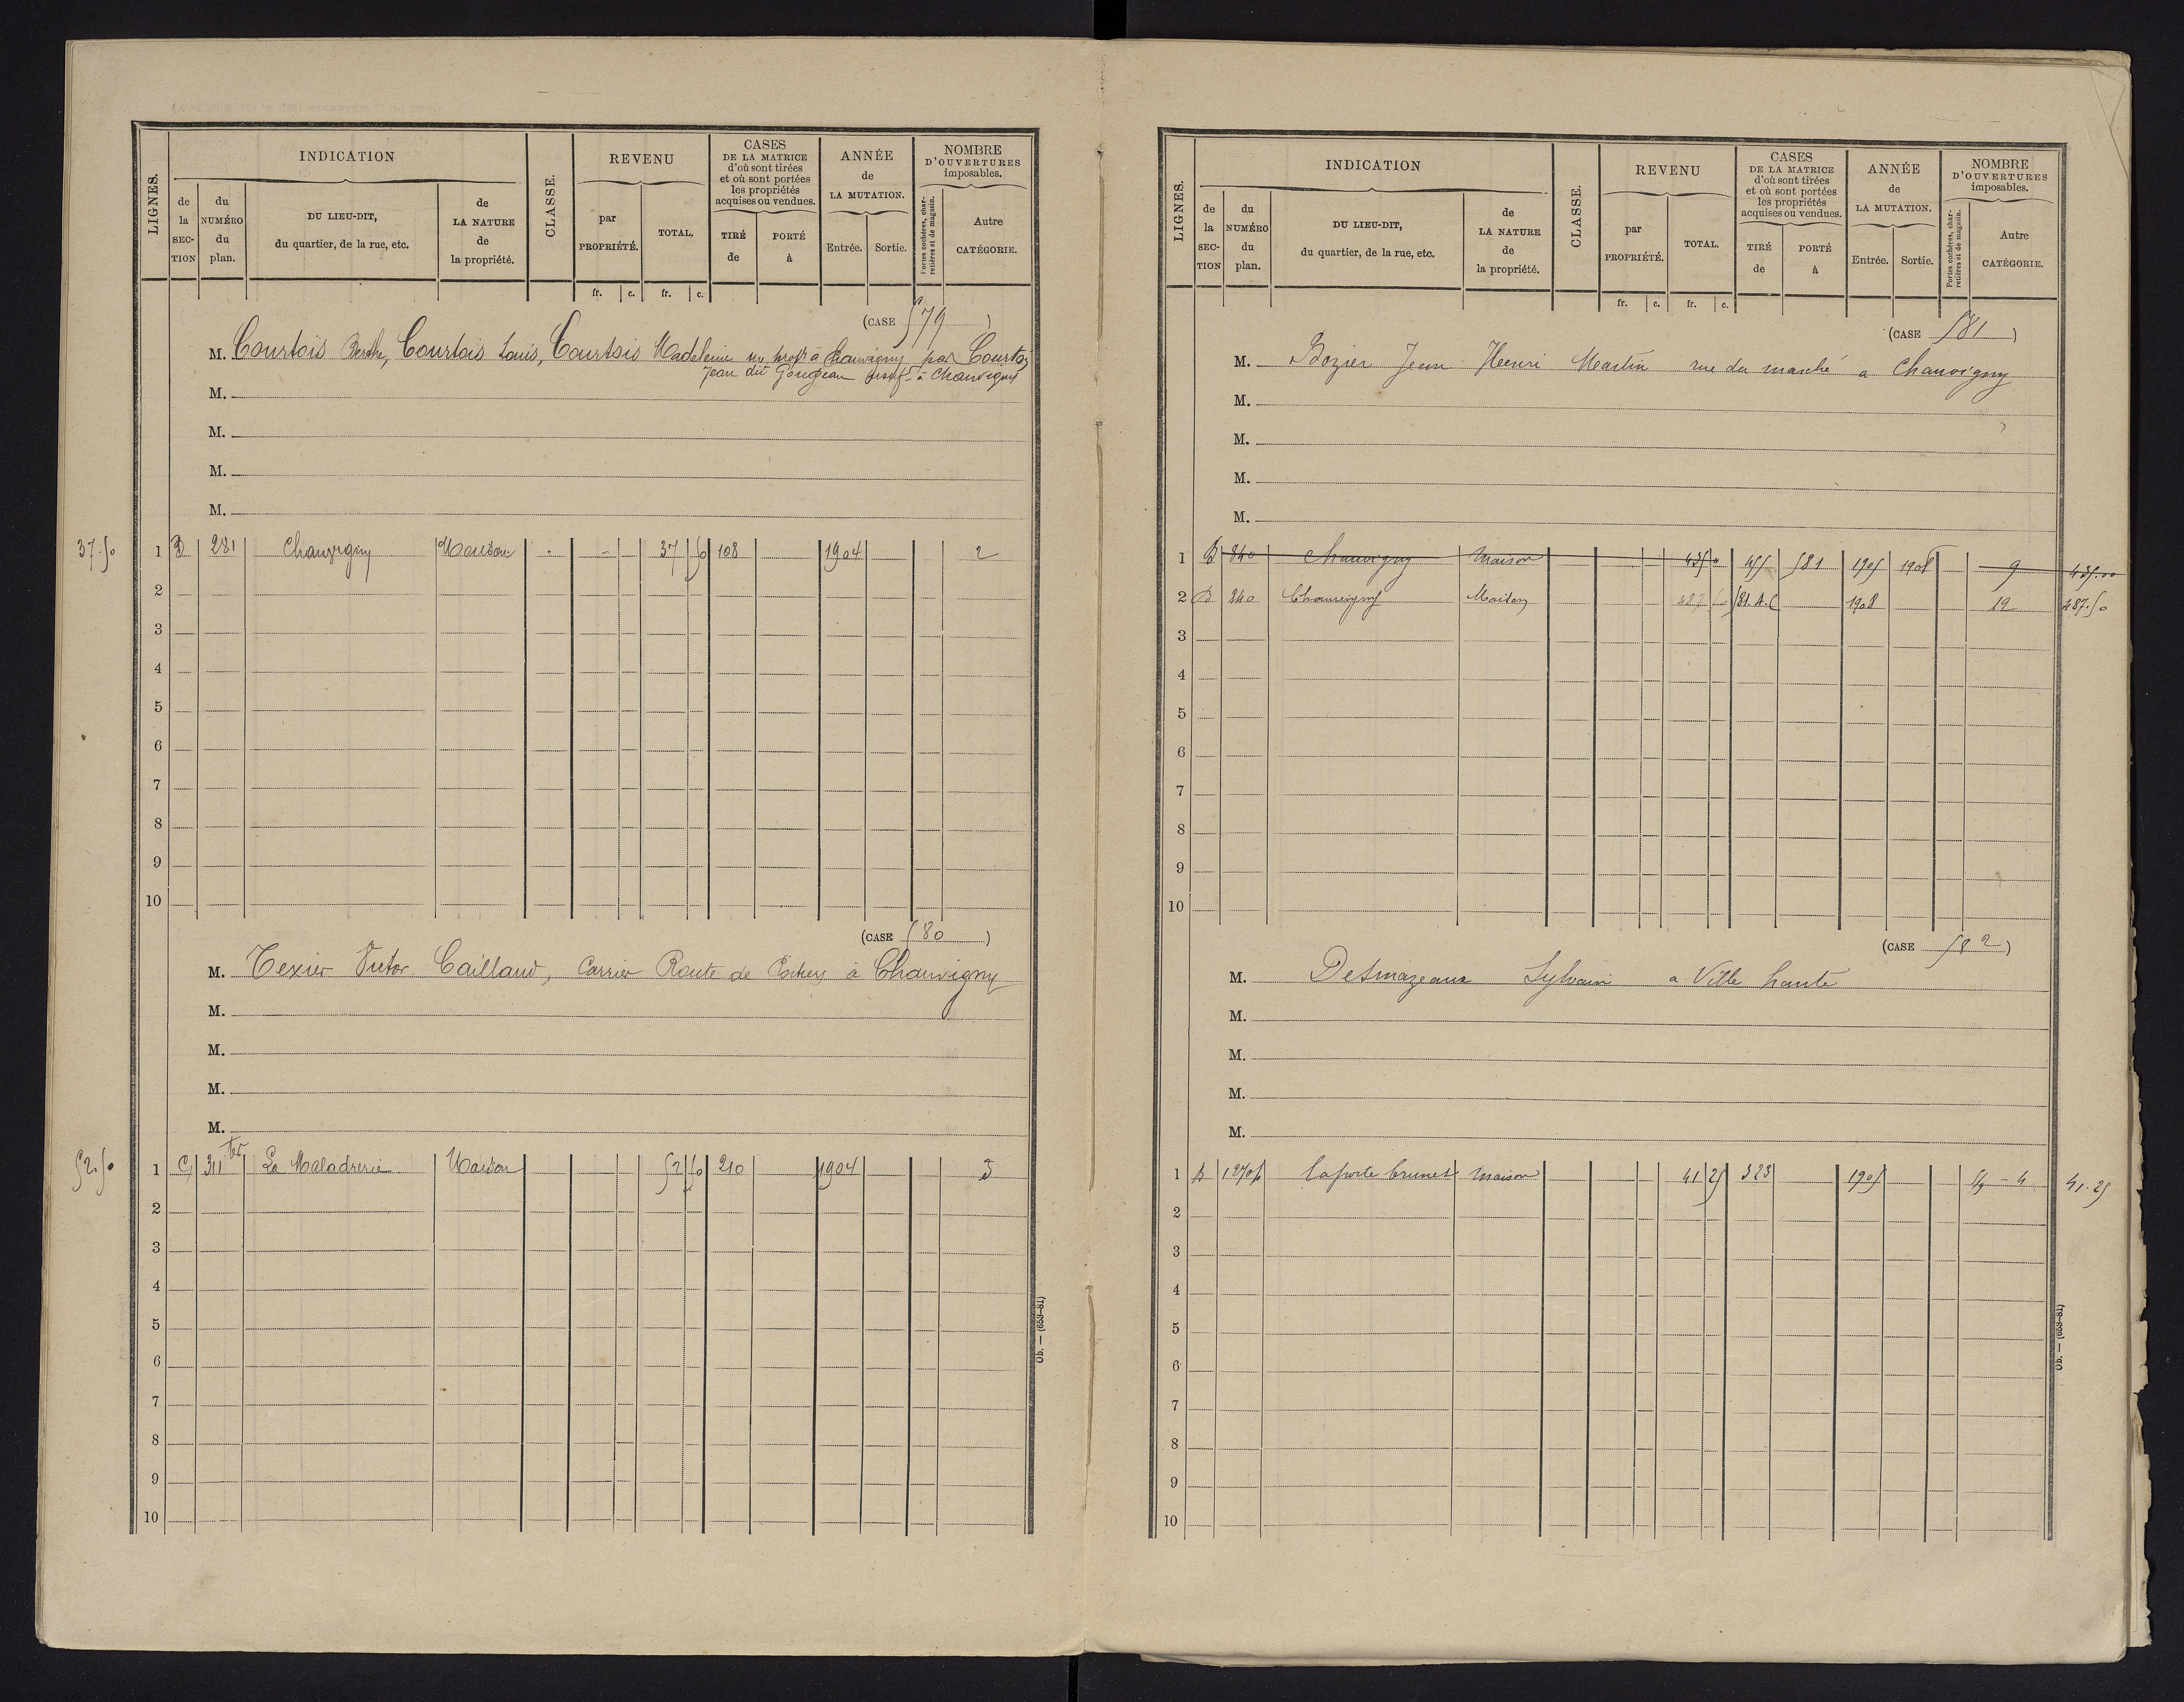 LIGNES.
INDICATION
de la SECTION
du NUMÉRO du plan.
DU LIEU-DIT, du quartier, de la rue, etc.
de LA NATURE de la propriété.
CLASSE.
REVENU
par PROPRIÉTÉ.
TOTAL.
fr. c. fr. c.
CASES DE LA MATRICE d'où sont tirées et où sont portées les propriétés acquises ou vendues.
TIRÉ de
PORTÉ à
ANNÉE de LA MUTATION.
Entrée. Sortie.
NOMBRE D'OUVERTURES imposables.
Portes cochères, charretières et de magasin.
Autre CATÉGORIE.
(CASE 579)
M. Courtois Berthe, Courtois Louis, Courtois Madeleine nu propr à Chauvigny par Courtois
Jean dit Gougeau usuf. à Chauvigny
M.
M.
M.
M.
37.50 1 B 281 Chauvigny Maison 37 50 108 1904 2
2
3
4
5
6
7
8
9
10
(CASE 580)
M. Texier Victor Caillaud, Carrier Route de à Chauvigny
M.
M.
M.
M.
52.50 1 G 311 ter La Maladrerie Maison 52 50 210 1904 3
2
3
4
5
6
7
8
9
10
Ob. — (653-81)
LIGNES.
INDICATION
de la SECTION
du NUMÉRO du plan.
DU LIEU-DIT, du quartier, de la rue, etc.
de LA NATURE de la propriété.
CLASSE.
REVENU
par PROPRIÉTÉ.
TOTAL.
fr. c. fr. c.
CASES DE LA MATRICE d'où sont tirées et où sont portées les propriétés acquises ou vendues.
TIRÉ de
PORTÉ à
ANNÉE de LA MUTATION.
Entrée. Sortie.
NOMBRE D'OUVERTURES imposables.
Portes cochères, charretières et de magasin.
Autre CATÉGORIE.
(CASE 581)
M. Bozier Jean Henri Martin rue du marché a Chauvigny
M.
M.
M.
M.
1 B 840 Chauvigny Maison 435 " 455 581 1905 1908 9 435.00
2 B 840 Chauvigny Maison 487 50 581.A.C 1908 19 487.50
3
4
5
6
7
8
9
10
(CASE 582)
M. Desmazeaux Sylvain a Ville haute
M.
M.
M.
M.
1 B 1270p la porte brunet maison 41 25 323 1905 4 41.25
2
3
4
5
6
7
8
9
10
Ob. — (653-81)